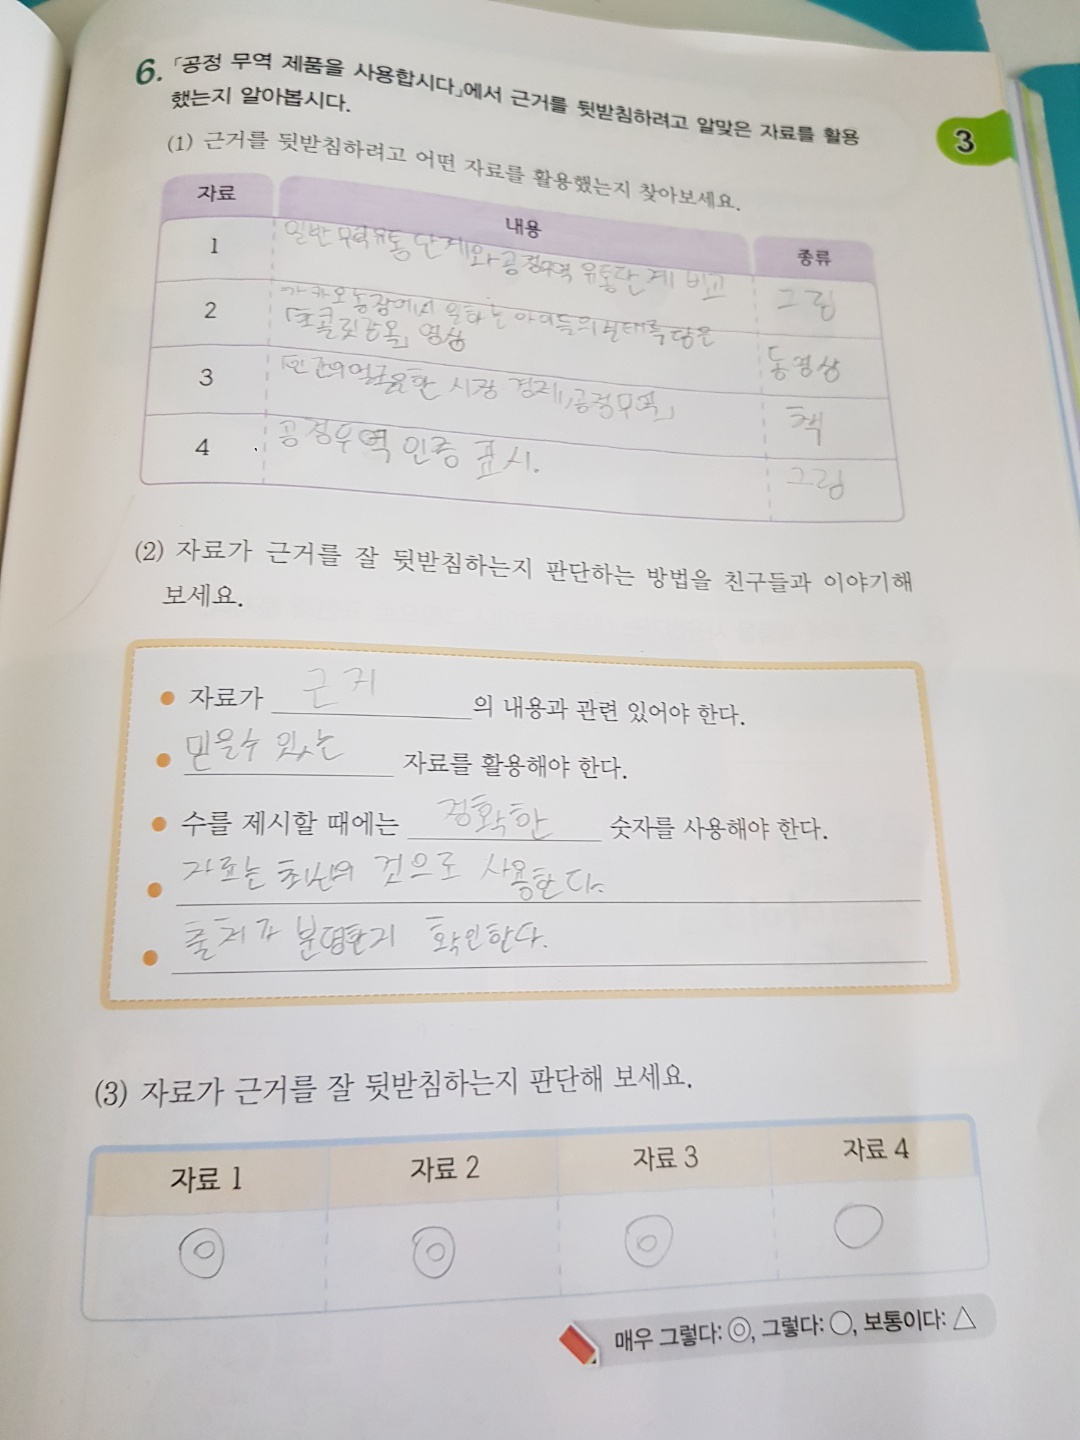 6. 「공정 무역 제품을 사용합시다」에서 근거를 뒷받침하려고 알맞은 자료를 활용
했는지 알아봅시다.
3
(1) 근거를 뒷받침하려고 어떤 자료를 활용했는지 찾아보세요.
자료 내용 종류
1 일반 무역 유통 단계와 공정무역 유통단계 비교 그림
2 카카오 농장에서 일하는 아이들의 실태를 담은
「초콜릿 감옥」 영상 동영상
3 「인간의 얼굴을 한 시장 경제, 공정무역」 책
4 공정무역 인증 표시. 그림
(2) 자료가 근거를 잘 뒷받침하는지 판단하는 방법을 친구들과 이야기해
보세요.
자료가 근거 의 내용과 관련 있어야 한다.
믿을수 있는 자료를 활용해야 한다.
수를 제시할 때에는 정확한 숫자를 사용해야 한다.
자료는 최신의 것으로 사용한다.
출처가 분명한지 확인한다.
(3) 자료가 근거를 잘 뒷받침하는지 판단해 보세요.
자료 1 자료 2 자료 3 자료 4
◎ ◎ ◎ ○
매우 그렇다: ◎, 그렇다: ○, 보통이다: △